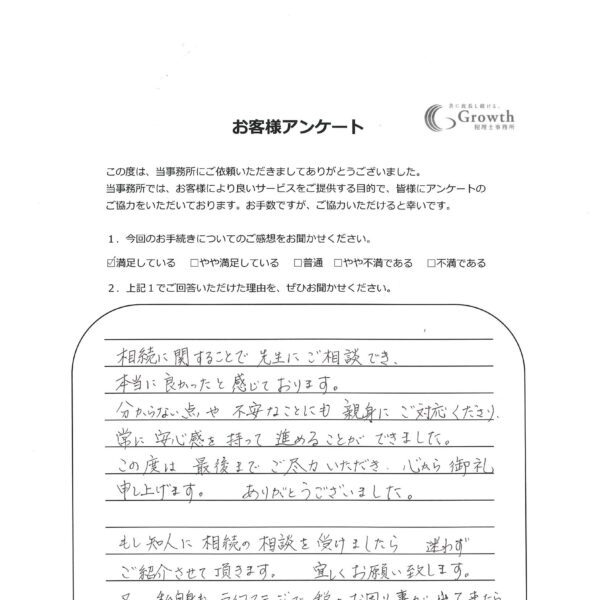 共に成長し続ける。
Growth
税理士事務所
お客様アンケート
この度は、当事務所にご依頼いただきましてありがとうございました。
当事務所では、お客様により良いサービスをご提供する目的で、皆様にアンケートの
ご協力をいただいております。お手数ですが、ご協力いただけると幸いです。
１．今回のお手続きについてのご感想をお聞かせください。
☑満足している □やや満足している □普通 □やや不満である □不満である
２．上記１でご回答いただけた理由を、ぜひお聞かせください。
相続に関することで 先生に ご相談でき、
本当に良かったと感じております。
分からない点や 不安なことにも 親身に ご対応くださり、
常に 安心感を 持って 進めることが できました。
この度は 最後まで ご尽力いただき、心から 御礼
申し上げます。 ありがとうございました。
もし知人に 相続の 相談を 受けましたら 迷わず
ご紹介させて 頂きます。 宜しくお願い致します。